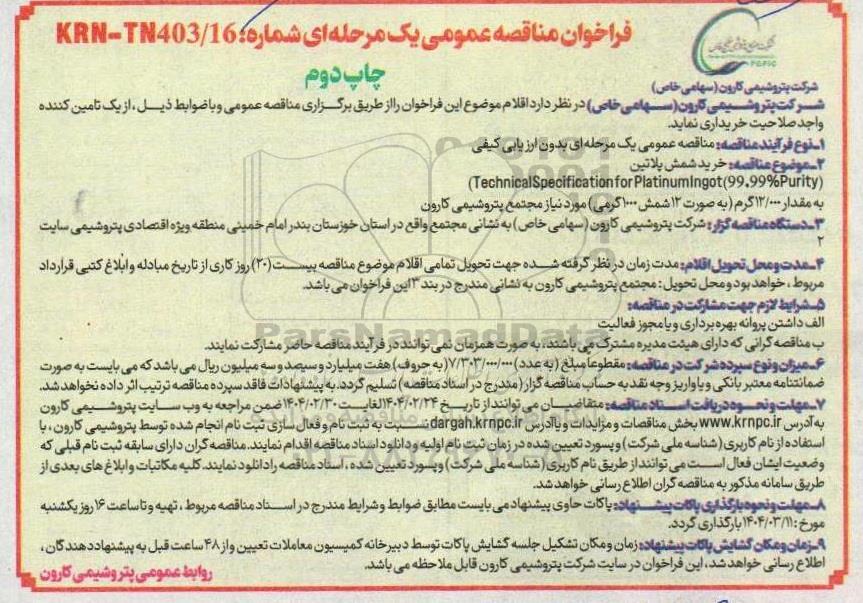 فراخوان مناقصه عمومی یک مرحله ای شماره: KRN-TN403/16
چاپ دوم
PGPIC
شرکت پتروشیمی کارون (سهامی خاص)
شرکت پتروشیمی کارون (سهامی خاص) در نظر دارد اقلام موضوع این فراخوان را از طریق برگزاری مناقصه عمومی و با ضوابط ذیل، از یک تامین کننده
واجد صلاحیت خریداری نماید.
۱-نوع فرآیند مناقصه: مناقصه عمومی یک مرحله ای بدون ارزیابی کیفی
۲-موضوع مناقصه: خرید شمش پلاتین
(Technical Specification for Platinum Ingot (99.99% Purity)
به مقدار ۱۲/۰۰۰ گرم (به صورت ۱۲ شمش ۱۰۰۰ گرمی) مورد نیاز مجتمع پتروشیمی کارون
۳-دستگاه مناقصه گزار: شرکت پتروشیمی کارون (سهامی خاص) به نشانی مجتمع واقع در استان خوزستان بندر امام خمینی منطقه ویژه اقتصادی پتروشیمی سایت
۲
۴-مدت و محل تحویل اقلام: مدت زمان در نظر گرفته شده جهت تحویل تمامی اقلام موضوع مناقصه بیست (۲۰) روز کاری از تاریخ مبادله و ابلاغ کتبی قرارداد
مربوط، خواهد بود و محل تحویل: مجتمع پتروشیمی کارون به نشانی مندرج در بند ۳ این فراخوان می باشد.
۵-شرایط لازم جهت مشارکت در مناقصه:
الف داشتن پروانه بهره برداری و یا مجوز فعالیت
ب مناقصه گرانی که دارای هیئت مدیره مشترک می باشند، به صورت همزمان نمی توانند در فرآیند مناقصه حاضر مشارکت نمایند.
۶-میزان و نوع سپرده شرکت در مناقصه: مقطوعا مبلغ (به عدد) ۷/۳۰۳/۰۰۰/۰۰۰ (به حروف) هفت میلیارد و سیصد و سه میلیون ریال می باشد که می بایست به صورت
ضمانتنامه معتبر بانکی و یا واریز وجه نقد به حساب مناقصه گزار (مندرج در اسناد مناقصه) تسلیم گردد. به پیشنهادات فاقد سپرده مناقصه ترتیب اثر داده نخواهد شد.
۷-مهلت و نحوه دریافت اسناد مناقصه: متقاضیان می توانند از تاریخ ۱۴۰۴/۰۲/۲۴ لغایت ۱۴۰۴/۰۲/۳۰ ضمن مراجعه به وب سایت پتروشیمی کارون
به آدرس www.krnpc.ir بخش مناقصات و مزایدات و یا آدرس dargah.krnpc.ir نسبت به ثبت نام و فعال سازی ثبت نام انجام شده توسط پتروشیمی کارون، با
استفاده از نام کاربری (شناسه ملی شرکت) و پسورد تعیین شده در زمان ثبت نام اولیه و دانلود اسناد مناقصه اقدام نمایند. مناقصه گران دارای سابقه ثبت نام قبلی که
وضعیت ایشان فعال است می توانند از طریق نام کاربری (شناسه ملی شرکت) و پسورد تعیین شده، اسناد مناقصه را دانلود نمایند. کلیه مکاتبات و ابلاغ های بعدی از
طریق سامانه مذکور به مناقصه گران اطلاع رسانی خواهد شد.
۸-مهلت و نحوه بارگذاری پاکات پیشنهاد: پاکات حاوی پیشنهاد می بایست مطابق ضوابط و شرایط مندرج در اسناد مناقصه مربوط، تهیه و تا ساعت ۱۶ روز یکشنبه
مورخ: ۱۴۰۴/۰۳/۱۱ بارگذاری گردد.
۹-زمان و مکان گشایش پاکات پیشنهاد: زمان و مکان تشکیل جلسه گشایش پاکات توسط دبیرخانه کمیسیون معاملات تعیین و از ۴۸ ساعت قبل به پیشنهاددهندگان،
اطلاع رسانی خواهد شد، این فراخوان در سایت شرکت پتروشیمی کارون قابل ملاحظه می باشد.
روابط عمومی پتروشیمی کارون
ParsNamadData